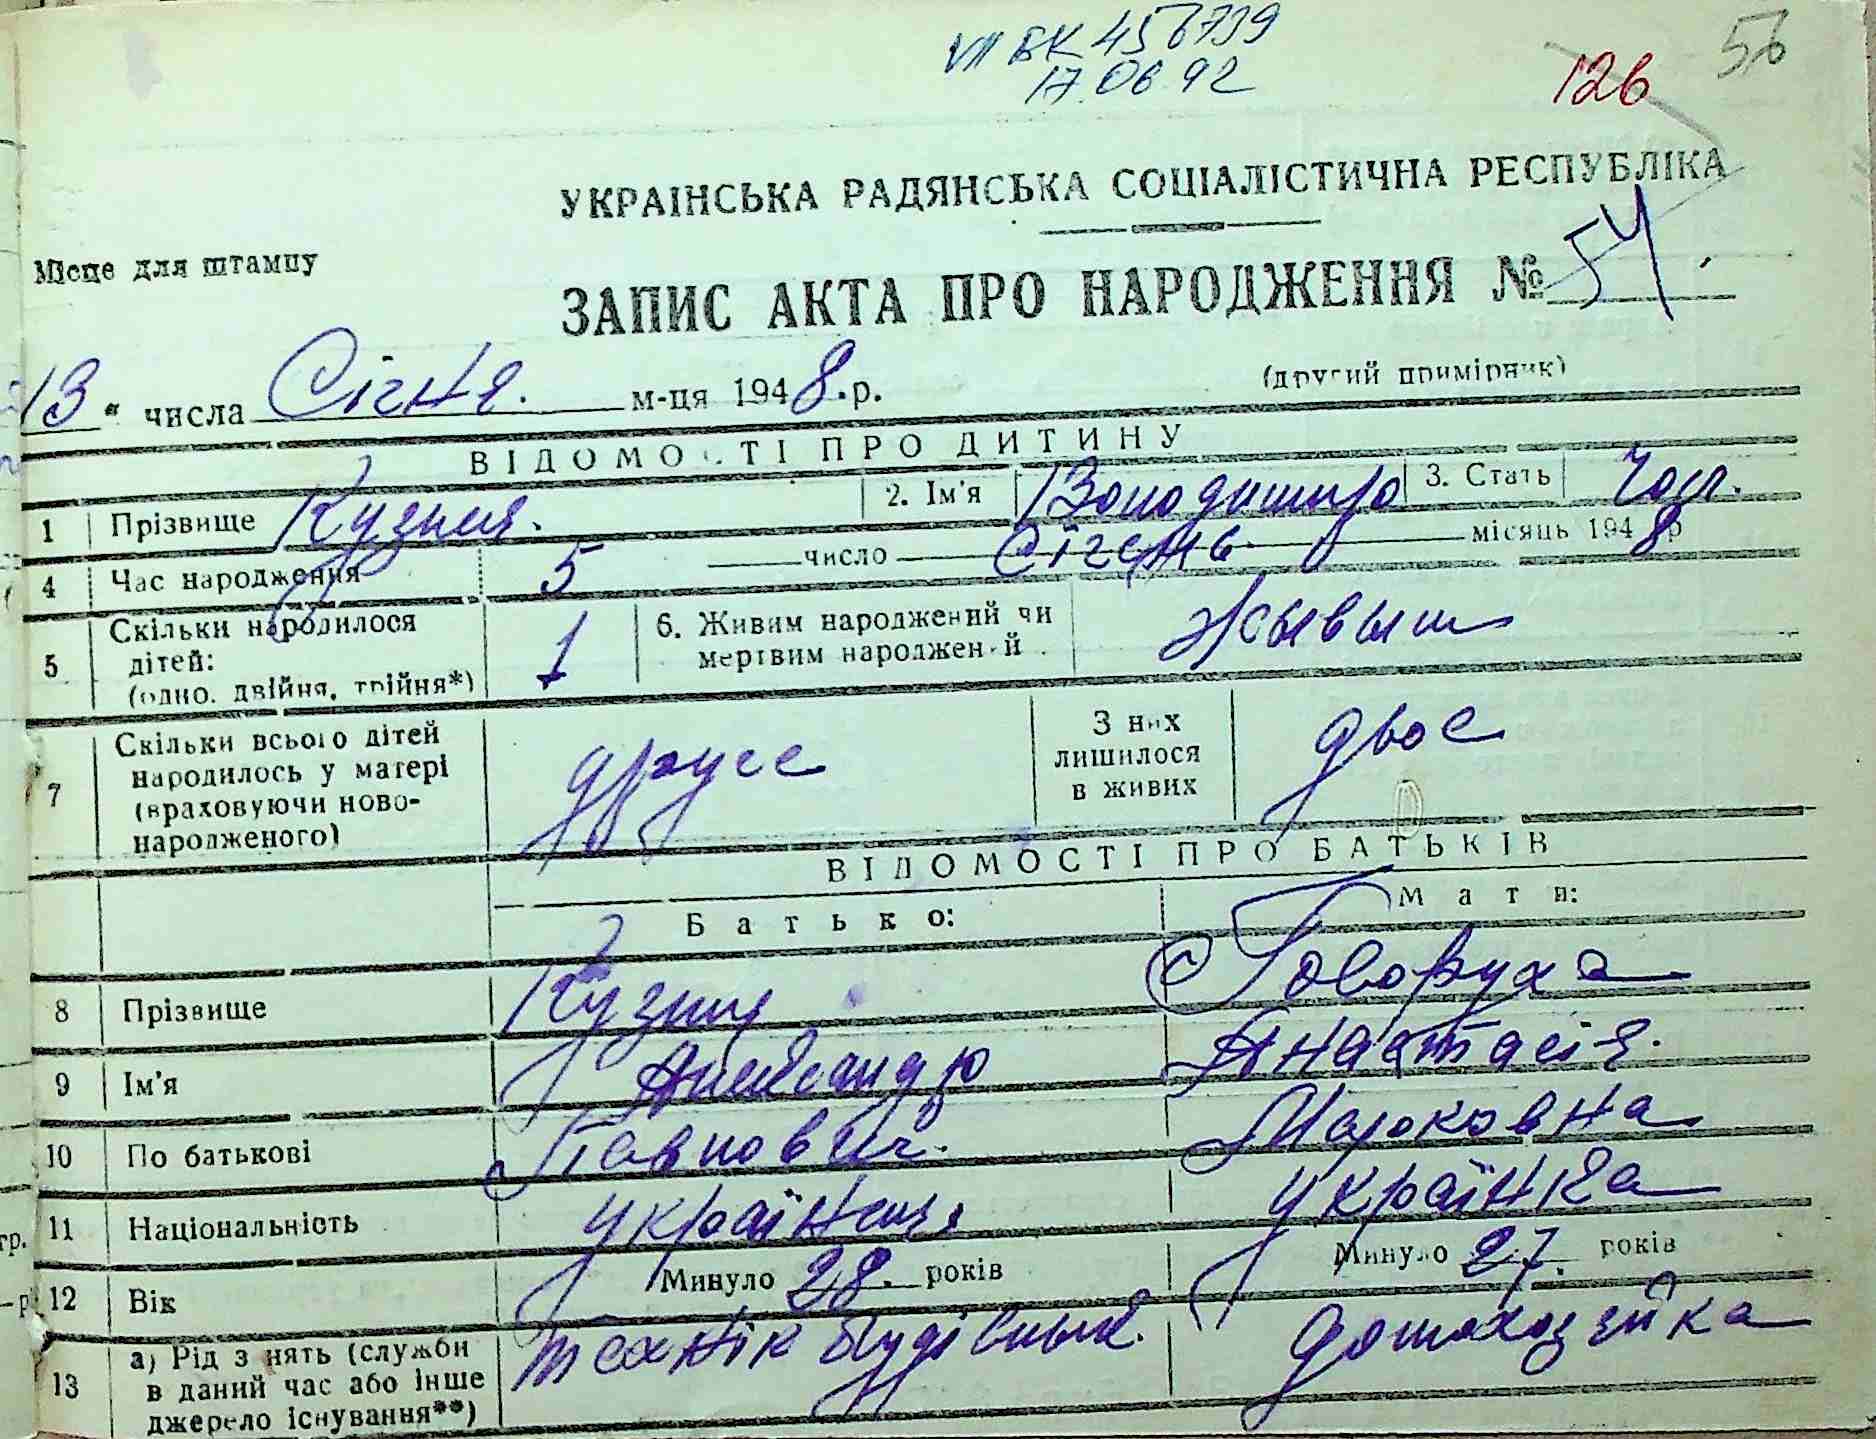 VII БК 456739
17.06.92
126
56
УКРАЇНСЬКА РАДЯНСЬКА СОЦІАЛІСТИЧНА РЕСПУБЛІКА
Місце для штампу
ЗАПИС АКТА ПРО НАРОДЖЕННЯ № 54
(другий примірник)
13 " числа Січня. м-ця 1948.р.
ВІДОМОСТІ ПРО ДИТИНУ
1 Прізвище 2. Ім'я Володимир 3. Стать Чол.
4 Час народження 5 число Січень місяць 1948р
5 Скільки народилося дітей: (одно, двійня, трійня*) 1 6. Живим народжений чи мертвим народжений
7 Скільки всього дітей народилось у матері (враховуючи новонародженого) друге З них лишилося в живих двоє
ВІДОМОСТІ ПРО БАТЬКІВ
Батько: Мати:
8 Прізвище Говоруха
9 Ім'я Александр Анастасія.
10 По батькові Павлович. Марковна
11 Національність українець українка
12 Вік Минуло 28. років Минуло 27. років
13 а) Рід занять (служби в даний час або інше джерело існування**) технік домохозяйка
гр.